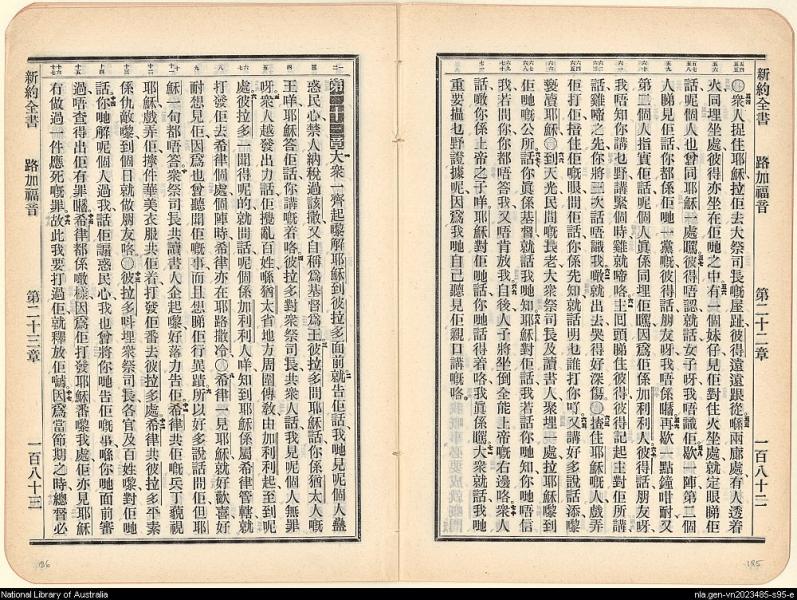 新約全書 路加福音 第二十二章 一百八十二
○衆人捉住耶穌拉佢去大祭司長嘅屋踀彼得遠遠跟從喺兩廊處有人透着
火同埋坐處彼得亦坐在佢哋之中有一個妹仔見佢對住火坐處就定眼睇佢
話呢個人也曾同耶穌一處嚹彼得唔認就話女子呀我唔識佢歇一陣第二個
人睇見佢話你都係佢哋一黨嘅彼得話朋友呀我唔係嚹再歇一點鐘咁耐又
第二個人指實佢話呢個人眞係同埋佢嚹因爲佢係加利利人彼得話朋友呀
我唔知你講乜野講緊個時雞就啼咯主囘頭睇住彼得彼得記起主對佢所講
話雞啼之先你將三次話唔識我噉就出去哭得好深傷○揸住耶穌嘅人戲弄
佢打佢揞住佢嘅眼問佢話你係先知就話明乜誰打你吖又講好多說話添嚟
褻瀆耶穌○到天光民間嘅長老大衆祭司長及讀書人聚埋一處拉耶穌嚟到
佢哋嘅公所話你眞係基督就話我哋知耶穌對佢話我若話你哋知你哋唔信
我若問你你都唔答我又唔肯放我自後人子將坐倒全能上帝嘅右邊咯衆人
話噉你係上帝之子咩耶穌對佢哋話你哋話得着咯我眞係嚹大衆就話我哋
重要攝乜野證據呢因爲我哋自己聽見佢親口講嘅咯
第二十三章大衆一齊起嚟解耶穌到彼拉多面前就告佢話我哋見呢個人蠱
惑民心禁人納稅過該撒又自稱爲基督爲王彼拉多問耶穌話你係猶太人嘅
王咩耶穌答佢話你講嘅着咯彼拉多對衆祭司長共衆人話我見呢個人無罪
呀衆人越發出力話佢攪亂百姓喺猶太省地方周圍傳敎由加利利起至到呢
處彼拉多一聞得呢的就問話呢個係加利利人咩知到耶穌係屬希律管轄就
打發佢去希律個處個陣時希律亦在耶路撒冷○希律一見耶穌就好歡喜好
耐想見佢因爲也曾聽聞佢嘅事而且想睇佢行異蹟所以好多說話問佢但耶
穌一句都唔答衆祭司長共讀書人企起嚟好落力告佢希律共佢嘅兵丁藐視
耶穌戲弄佢攃件華美衣服共佢着打發佢番去彼拉多處希律共彼拉多平素
係仇敵嚟到個日就做朋友咯○彼拉多呌埋衆祭司長各官及百姓嚟對佢哋
話你哋解呢個人過我話佢謿惑民心我也曾將你哋告佢嘅事喺你哋面前審
過唔查得出佢有罪嚹希律都係噉樣因爲佢打發耶穌番嚟我處佢亦見耶穌
有做過一件應死嘅罪故此我要打過佢就釋放佢嚹因爲當節期之時總督必
新約全書 路加福音 第二十三章 一百八十三
186
185
National Library of Australia
nla.gen-vn2023485-s95-e